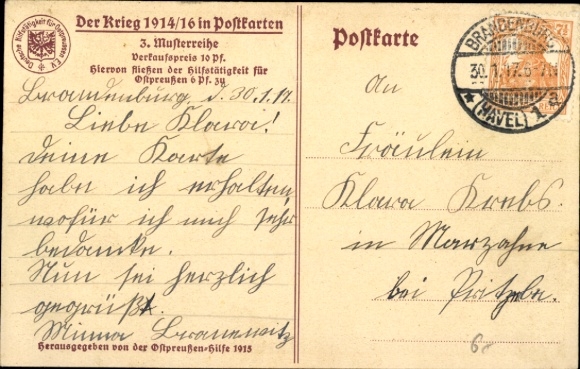 Der Krieg 1914/16 in Postkarten
3. Musterreihe
Verkaufspreis 10 Pf.
Hiervon fließen der Hilfstätigkeit für
Ostpreußen 6 Pf. zu
Brandenburg, d. 30.1.17.
Liebe Klara!
Deine Karte
habe ich erhalten,
wofür ich mich sehr
bedanke.
Nun sei herzlich
gegrüßt.
Minna Branewitz
Herausgegeben von der Ostpreußen-Hilfe 1915
Postkarte
BRANDENBURG
30.1.17.
* (HAVEL) 1 a
7½
An
Fräulein
Klara Krebs.
in Marzahne
bei Pritzebe.